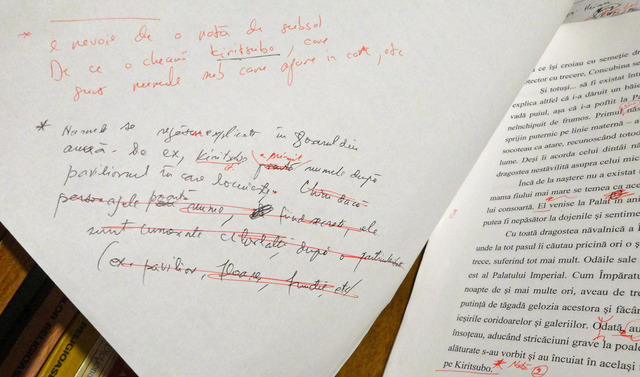 * e nevoie de o notă de subsol
De ce o cheamă Kiritsubo, care
sunt numele sub care apare în carte, etc
* Numele se regăsesc explicate în glosarul din
anexă. De ex, Kiritsubo a primit numele după
pavilionul în care locuiește. Chiar dacă
personajele poartă nume, fiind secrete, ele
sunt cunoscute cititorului, după o particularitate
(ex. pavilion, floare, funcție, etc)
ce își croiau cu semeție
tector cu trecere, Concubina se
Și totuși... să fi existat în
explica altfel că i-a dăruit un băie
vadă puiul, așa că i-a poftit la
neînchipuit de frumos. Primul
sprijin puternic pe linie maternă – a
socoteau ca atare, recunoscând totod
lume. Deși îi acorda celui dintâi
dragostea nestăvilită asupra celui mi
Încă de la naștere nu a existat
mama fiului mai mare se temea ca
lui consoartă. El venise la Palat în ani
putea fi nepăsător la dojenile și sentim
Cu toată dragostea năvalnică a Î
unde la tot pasul îi căutau pricină ori o
trece, suferind tot mai mult. Odăile sale
est al Palatului Imperial. Cum Împărat
noapte de și mai multe ori, aveau de tre
putință de tăgadă gelozia acestora și făcân
ieșirile coridoarelor și galeriilor. Odată, au
însoțeau, aducând stricăciuni grave la poale
alăturate s-au vorbit și au încuiat în același
pe Kiritsubo. * Notă 2